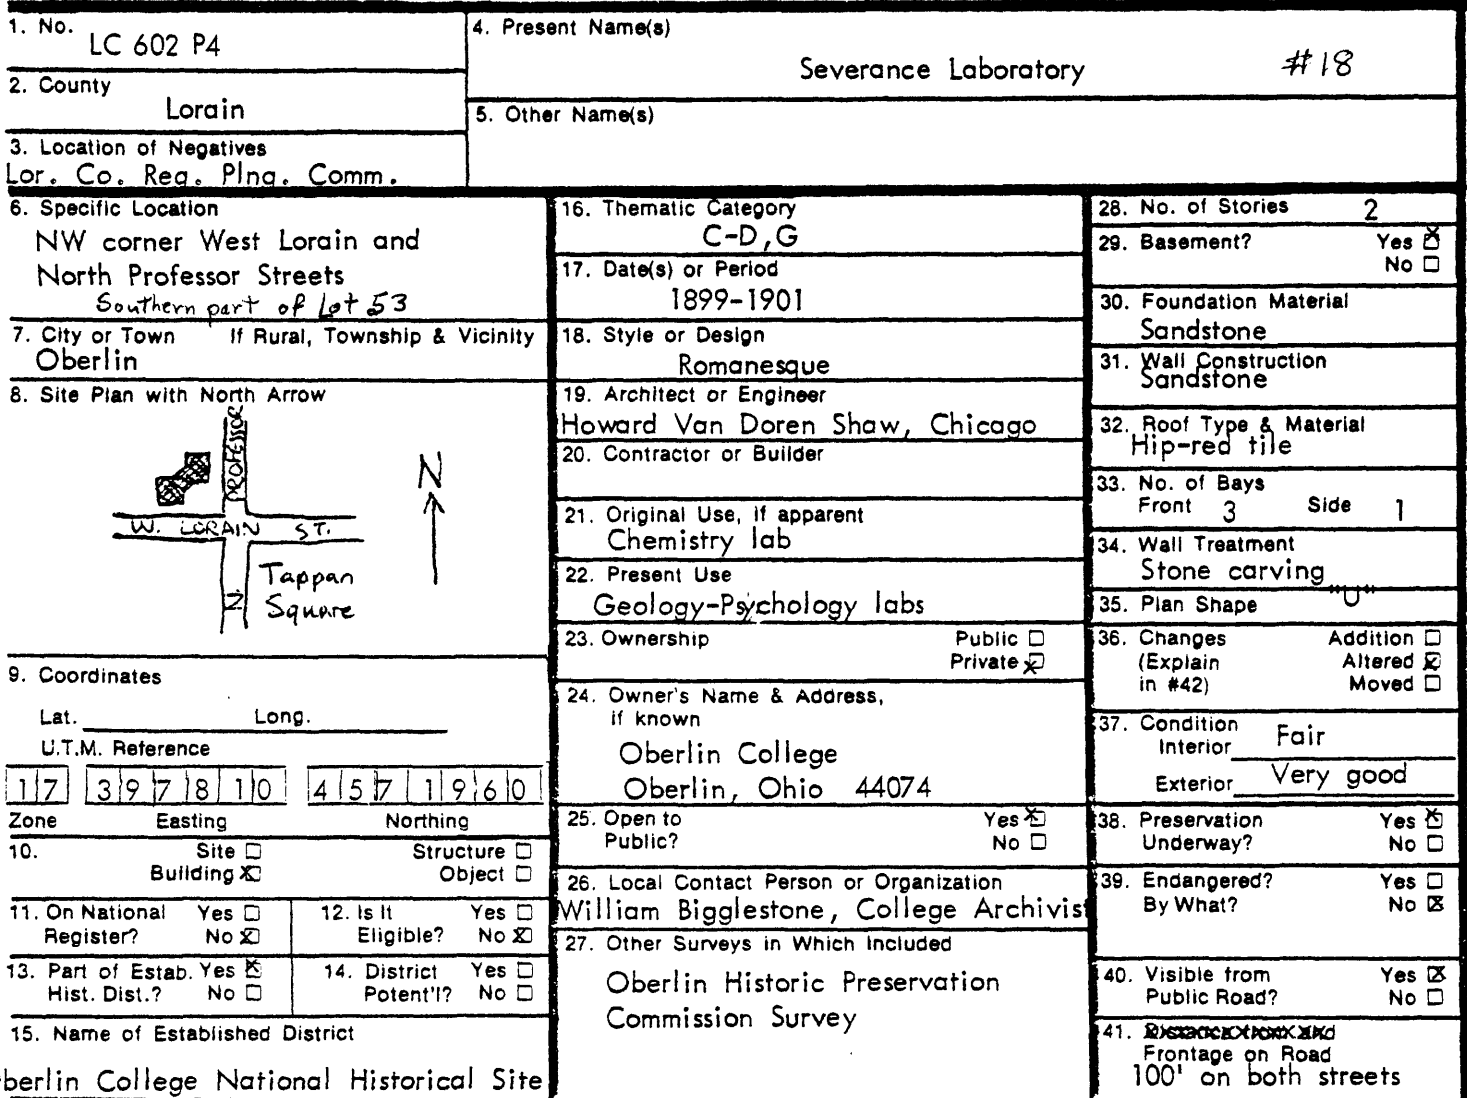 1. No.
LC 602 P4
2. County
Lorain
3. Location of Negatives
Lor. Co. Reg. Plng. Comm.
4. Present Name(s)
Severance Laboratory #18
5. Other Name(s)
6. Specific Location
NW corner West Lorain and
North Professor Streets
Southern part of Lot 53
7. City or Town If Rural, Township & Vicinity
Oberlin
8. Site Plan with North Arrow
PROFESSOR
N
W. LORAIN ST.
Tappan
Square
N.
9. Coordinates
Lat. Long.
U.T.M. Reference
17 397810 4571960
Zone Easting Northing
10. Site Structure
Building X Object
11. On National Yes
Register? No X
12. Is It Yes
Eligible? No X
13. Part of Estab. Yes X
Hist. Dist.? No
14. District Yes
Potent'l? No
15. Name of Established District
berlin College National Historical Site
16. Thematic Category
C-D,G
17. Date(s) or Period
1899-1901
18. Style or Design
Romanesque
19. Architect or Engineer
Howard Van Doren Shaw, Chicago
20. Contractor or Builder
21. Original Use, if apparent
Chemistry lab
22. Present Use
Geology-Psychology labs
23. Ownership Public
Private X
24. Owner's Name & Address,
if known
Oberlin College
Oberlin, Ohio 44074
25. Open to Yes X
Public? No
26. Local Contact Person or Organization
William Bigglestone, College Archivist
27. Other Surveys in Which Included
Oberlin Historic Preservation
Commission Survey
28. No. of Stories 2
29. Basement? Yes X
No
30. Foundation Material
Sandstone
31. Wall Construction
Sandstone
32. Roof Type & Material
Hip-red tile
33. No. of Bays
Front 3 Side 1
34. Wall Treatment
Stone carving
35. Plan Shape "U"
36. Changes Addition
(Explain Altered X
in #42) Moved
37. Condition
Interior Fair
Exterior Very good
38. Preservation Yes X
Underway? No
39. Endangered? Yes
By What? No X
40. Visible from Yes X
Public Road? No
41.
Frontage on Road
100' on both streets